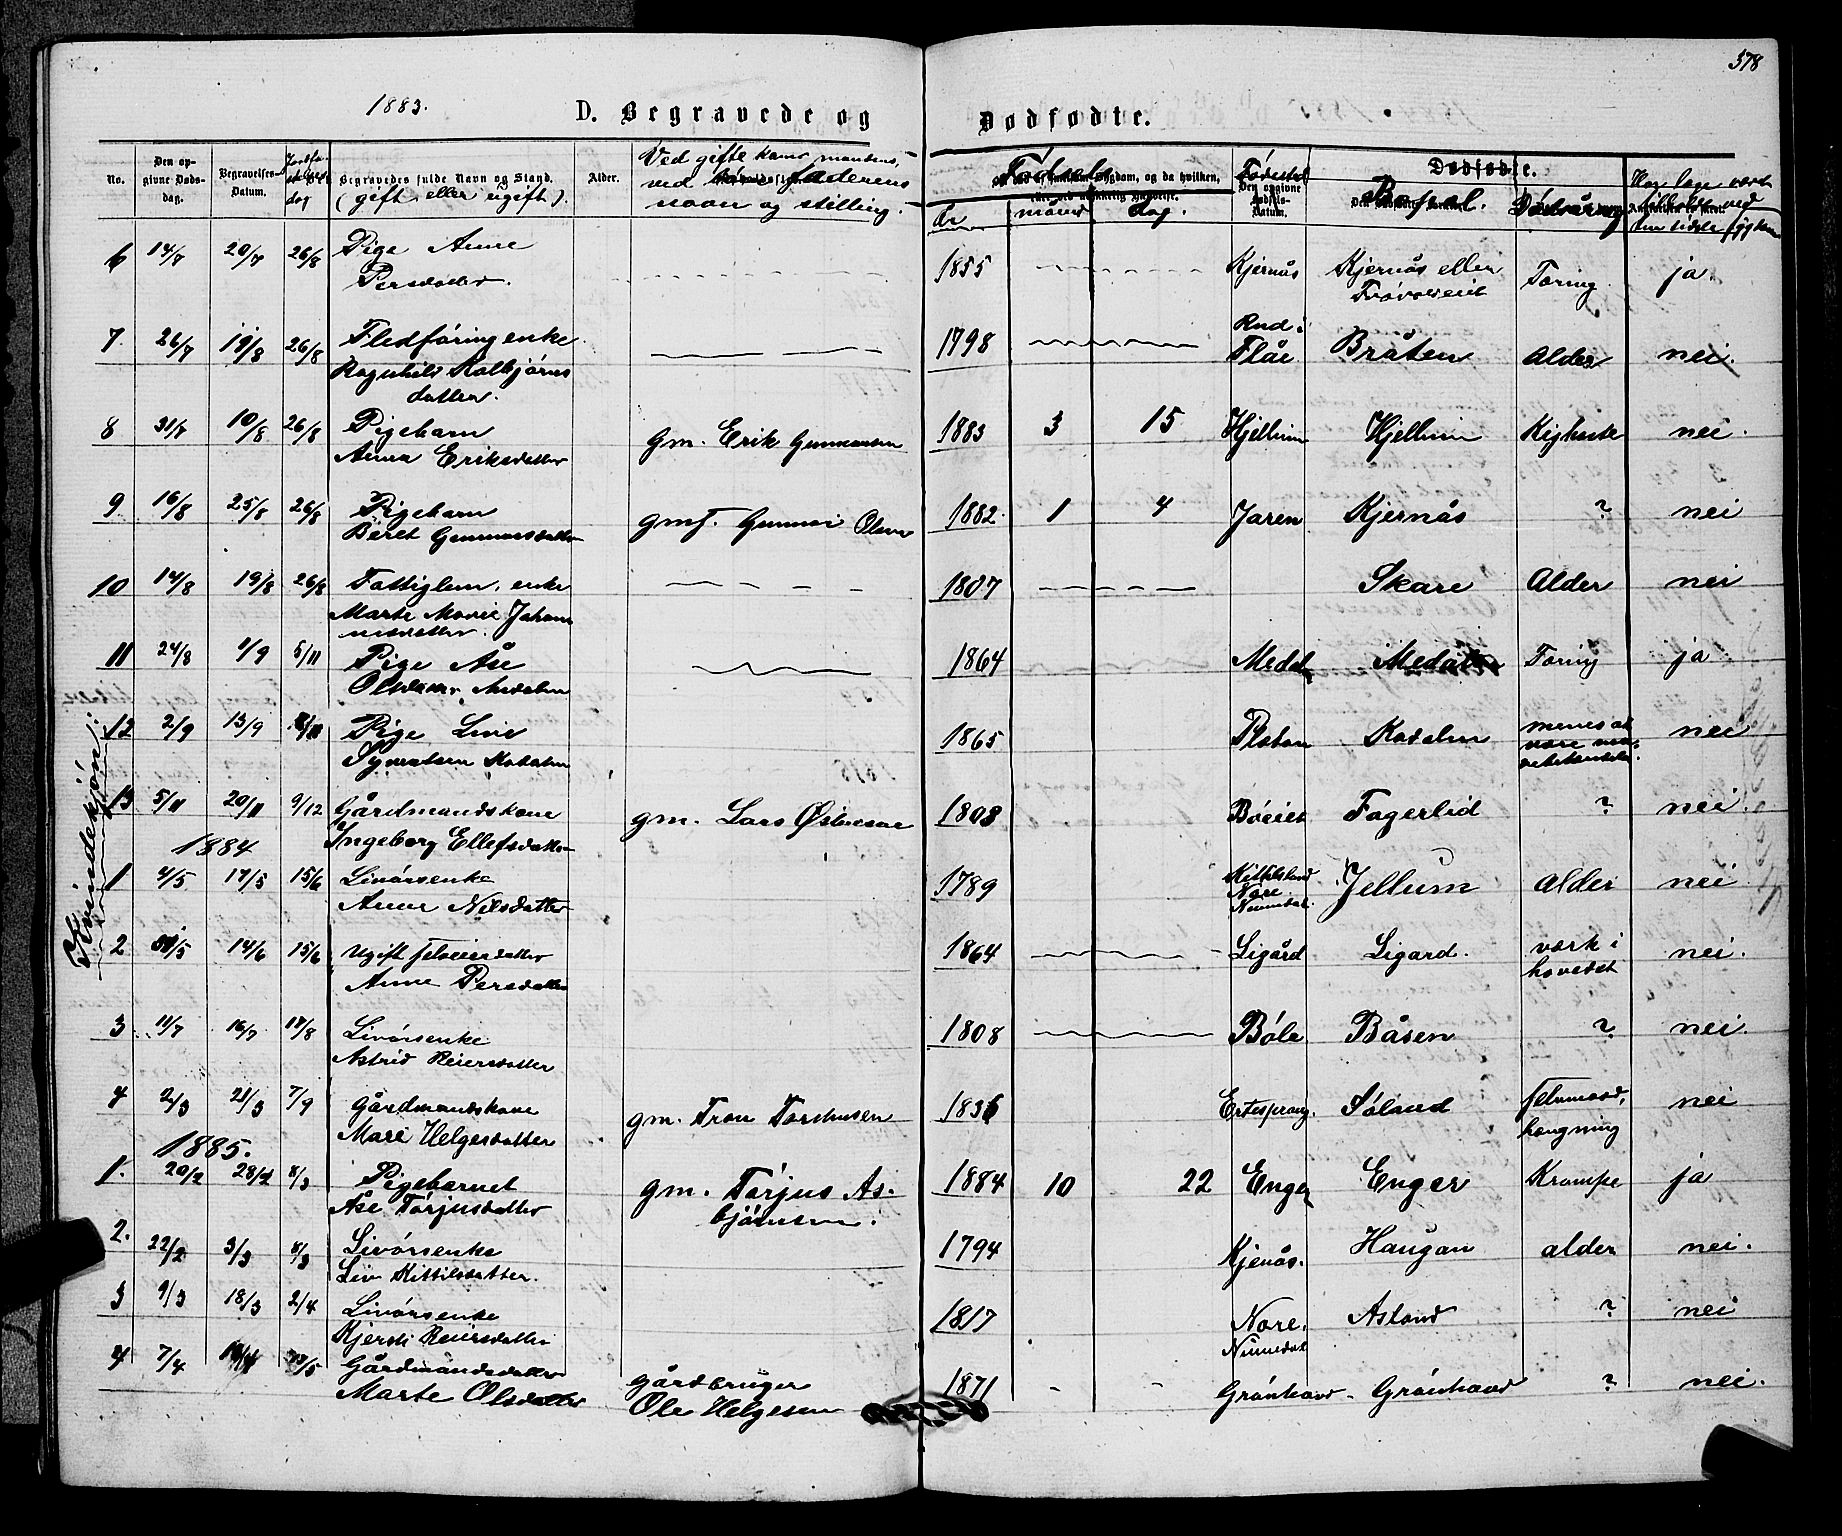 578
1883.
D. Begravede og Dødfødte.
No. Den opgivne Dødsdag. Begravelses-Datum. Begravedes fulde Navn og Stand. (gift eller ugift). Alder. Ved gifte koner mandens, ved faderens navn og stilling.
År måned dag. Fødested Dødfødte. Bopæl. Dødsårsag
6 14/7 20/7 26/8 Pige Anne 1855 Kjernås Kjernås eller Tæring ja
Persdatter.
7. 26/7 19/8 26/8 Fledføring enke 1798 Rud i Flåe Bråten Alder nei.
Ragnhild Kolbjørns
datter.
8 31/7 10/8 26/8 Pigebarn gm. Erik Gunnarsen 1883 3 15 Hjellum Hjellum Kighoste nei.
Anna Eriksdatter
9 16/8 25/8 26/8 Pigebarn Gunnar Olsen 1882. 1 4 Jaren Kjernås ? nei
Beret Gunnarsdatter
10 14/8 19/8 26/8 Fattiglem, enke 1807 Skare Alder nei
Marte Marie Johan
nesdatter.
11 24/8 1/9 5/11 Pige Åse 1864 Medal Medalen Tæring ja
12 2/9 13/9 Pige Live 1865 menes at være nei
13 5/11 20/11 9/12 Gårdmandskone gm. Lars 1803 Bøeiet Fagerlid ? nei.
Ingeborg Ellefsdatter
1884
1 4/5 17/5 15/6 Livørsenke 1789 Nore Jellum Alder nei
Anne Nilsdatter
2 31/5 14/6 15/6 Ugift 1864 Ligård Ligard. værk i hovedet nei.
Anne Persdatter
3 11/7 16/7 17/8 Livørsenke 1808 Bøle Båsen ? nei.
Astrid Reiersdatter
4 2/3 21/3 7/9 Gårdmandskone gm. Tron Torstensen Ertesprang. Søland selvmord, hængning nei
Mari Helgesdatter
1885.
1. 20/2 28/2 8/3 Pigebarnet gm. Tørjus As- 1884 10 22 Enger Enger Krampe ja
Åse Tørjusdatter bjørnsen.
2. 22/2 3/3 8/3 Livørsenke 1794 Kjenås. Haugan alder nei.
Liv Kittilsdatter.
3 9/3 18/3 2/4 Livørsenke 1817 Nore. Åsland ? nei
Kjersti Reiersdatter
4 7/4 Gårdmandsdatter gårdbruger 1871 - - Grønhavd - Grønhavd ? nei.
Marte Olsdatter Ole Helgesen
Kvindekjøn: